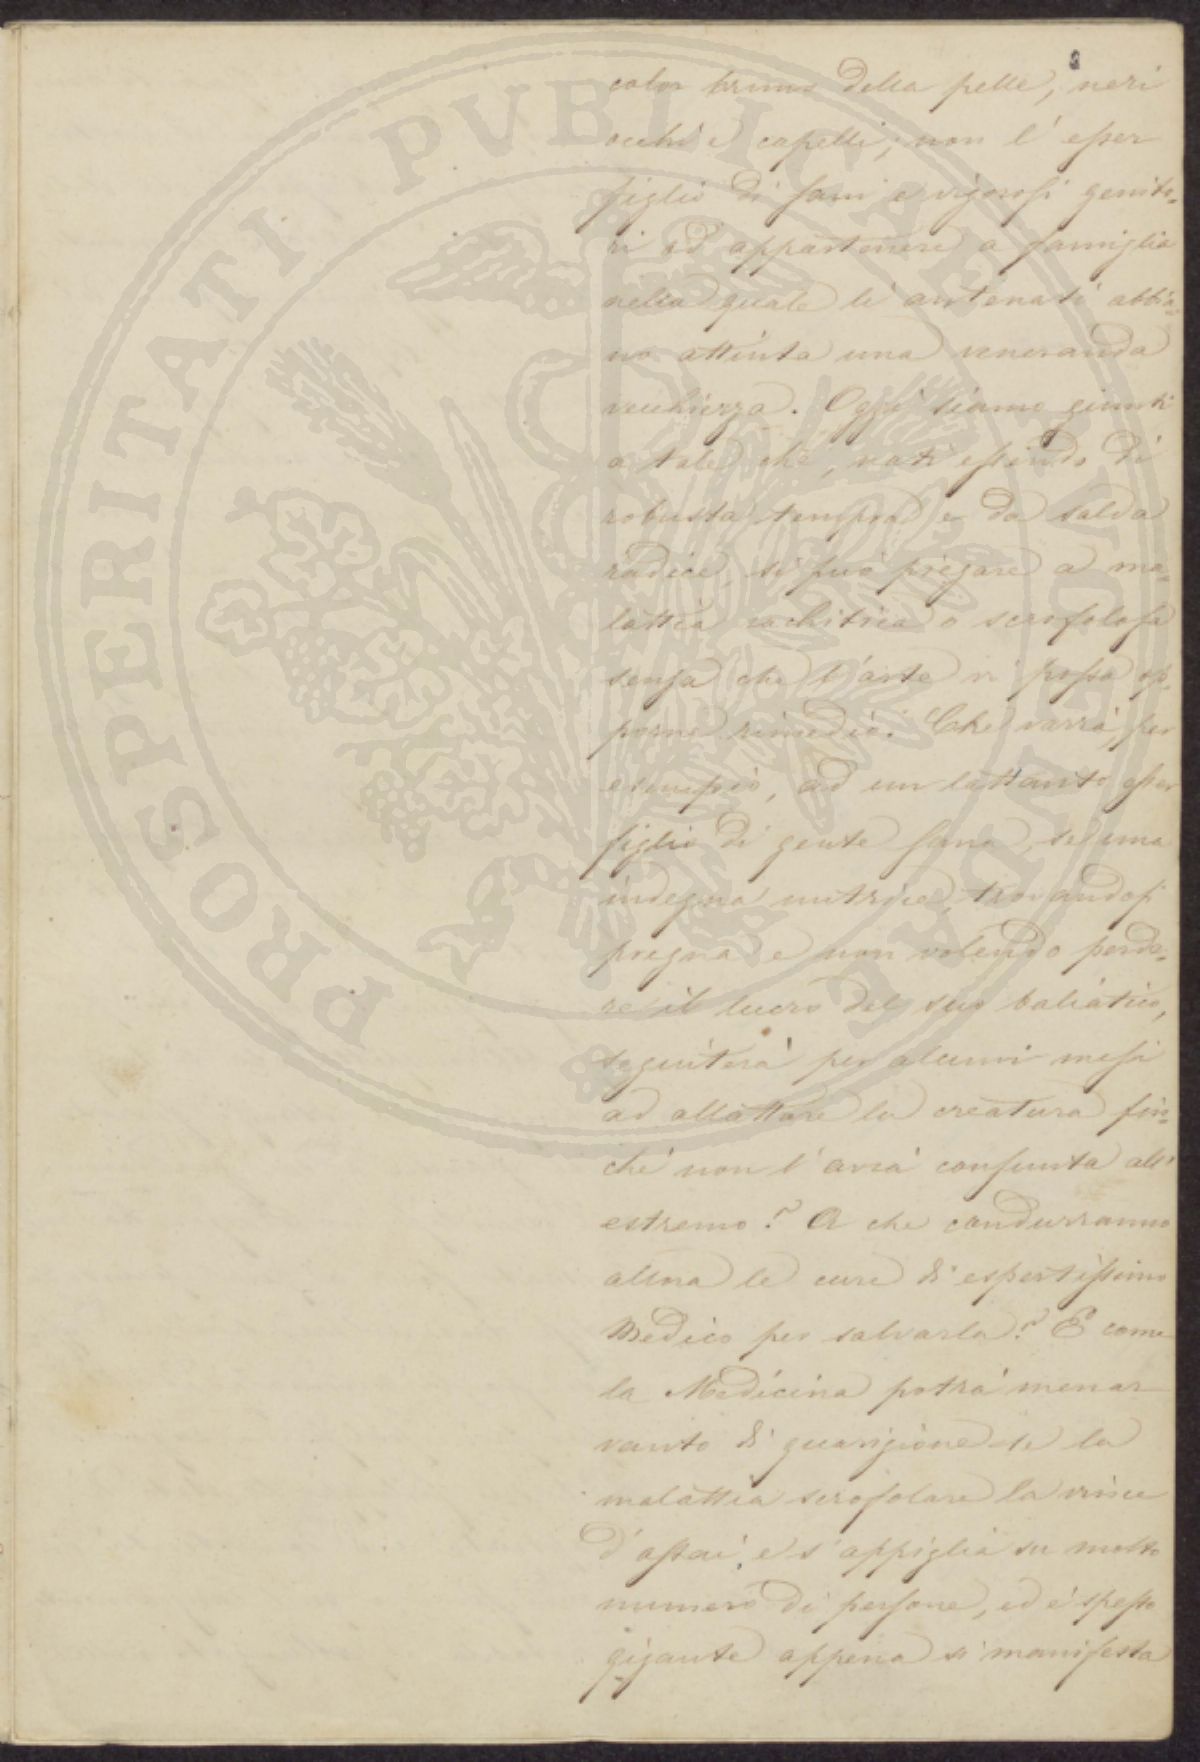 3
color bruno della pelle, neri
occhi e capelli; non l'esser
figlio di sani e vigorosi genito-
ri ed appartenere a famiglia
nella quale li antenati abbia-
no attinta una veneranda
vecchiezza. Oggi siamo giunti
a tale che, nati essendo di
robusta tempra e da salda
radice, si può piegare a ma-
lattia rachitica o scrofolosa
senza che l'arte vi possa op-
porne rimedio. Che varrà, per
esempio, ad un lattante esser
figlio di gente sana, se una
indegna nutrice, trovandosi
pregna e non volendo perde-
re il lucro del suo baliatico,
seguiterà per alcuni mesi
ad allattare la creatura fin-
chè non l'avrà consunta all'
estremo? A che condurranno
allora le cure di espertissimo
Medico per salvarla? E come
la Medicina potrà menar
vanto di guarigione se la
malattia scrofolare la vince
d'assai, e s'appiglia su molto
numero di persone, ed è spesso
gigante appena si manifesta
PROSPERITATI PVBLICAE AVGENDAE